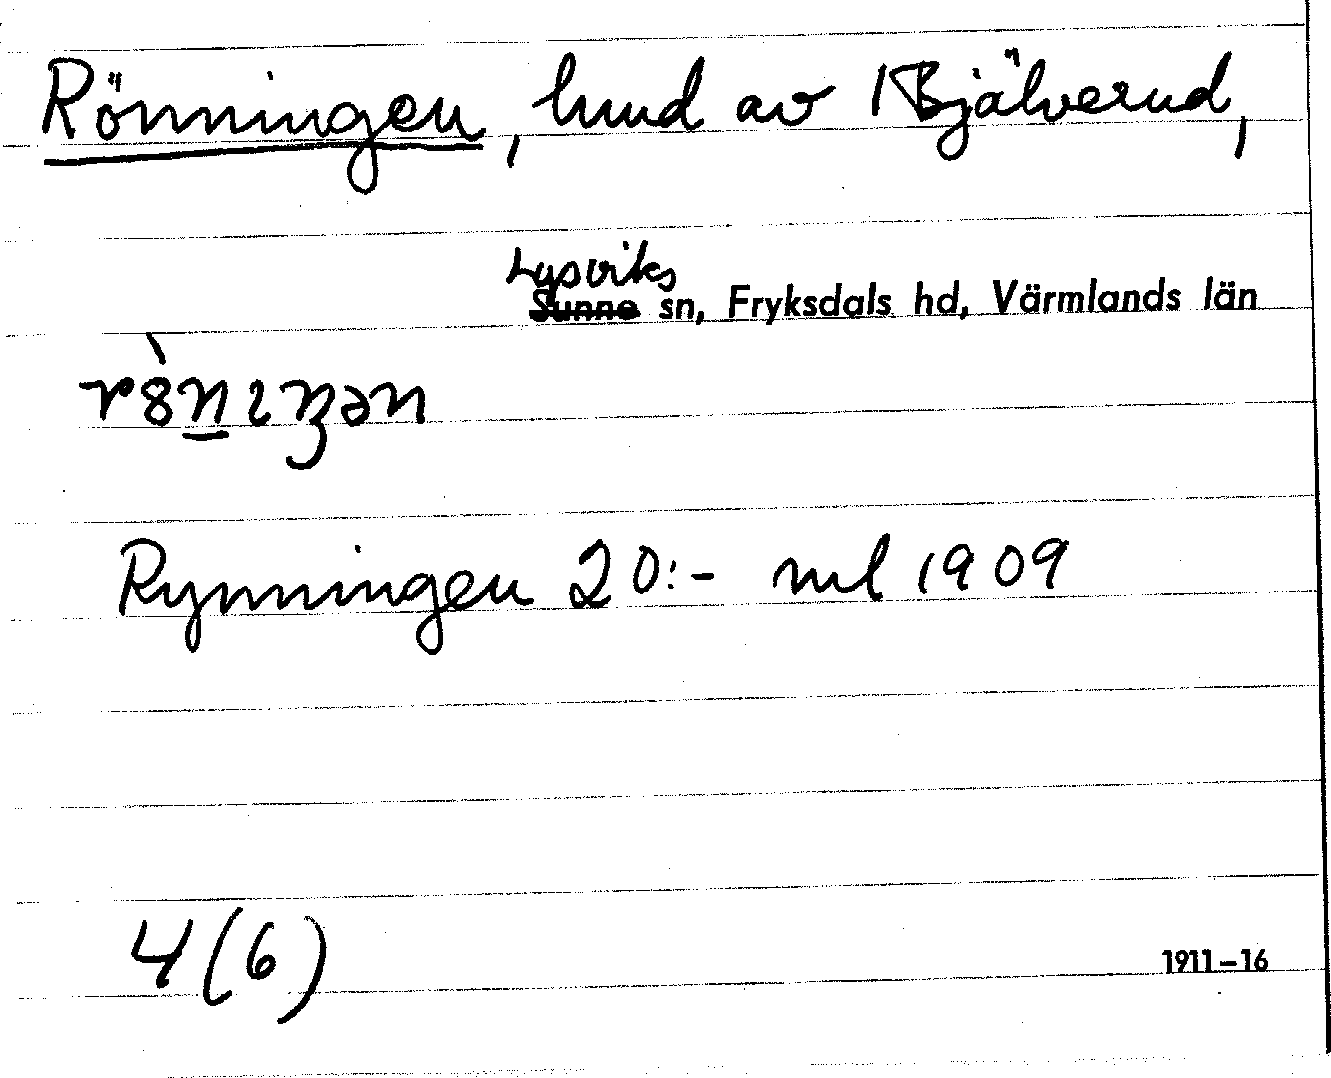 Rönningen, lund av 1 Bjälverud,
Lysviks
Sunne sn, Fryksdals hd, Värmlands län
Rynningen 20:- ml 1909
4(6)
1911-16